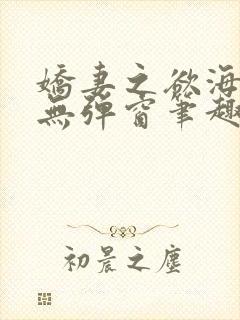 嬌妻之欲海
無彈窗筆趣
初晨之塵